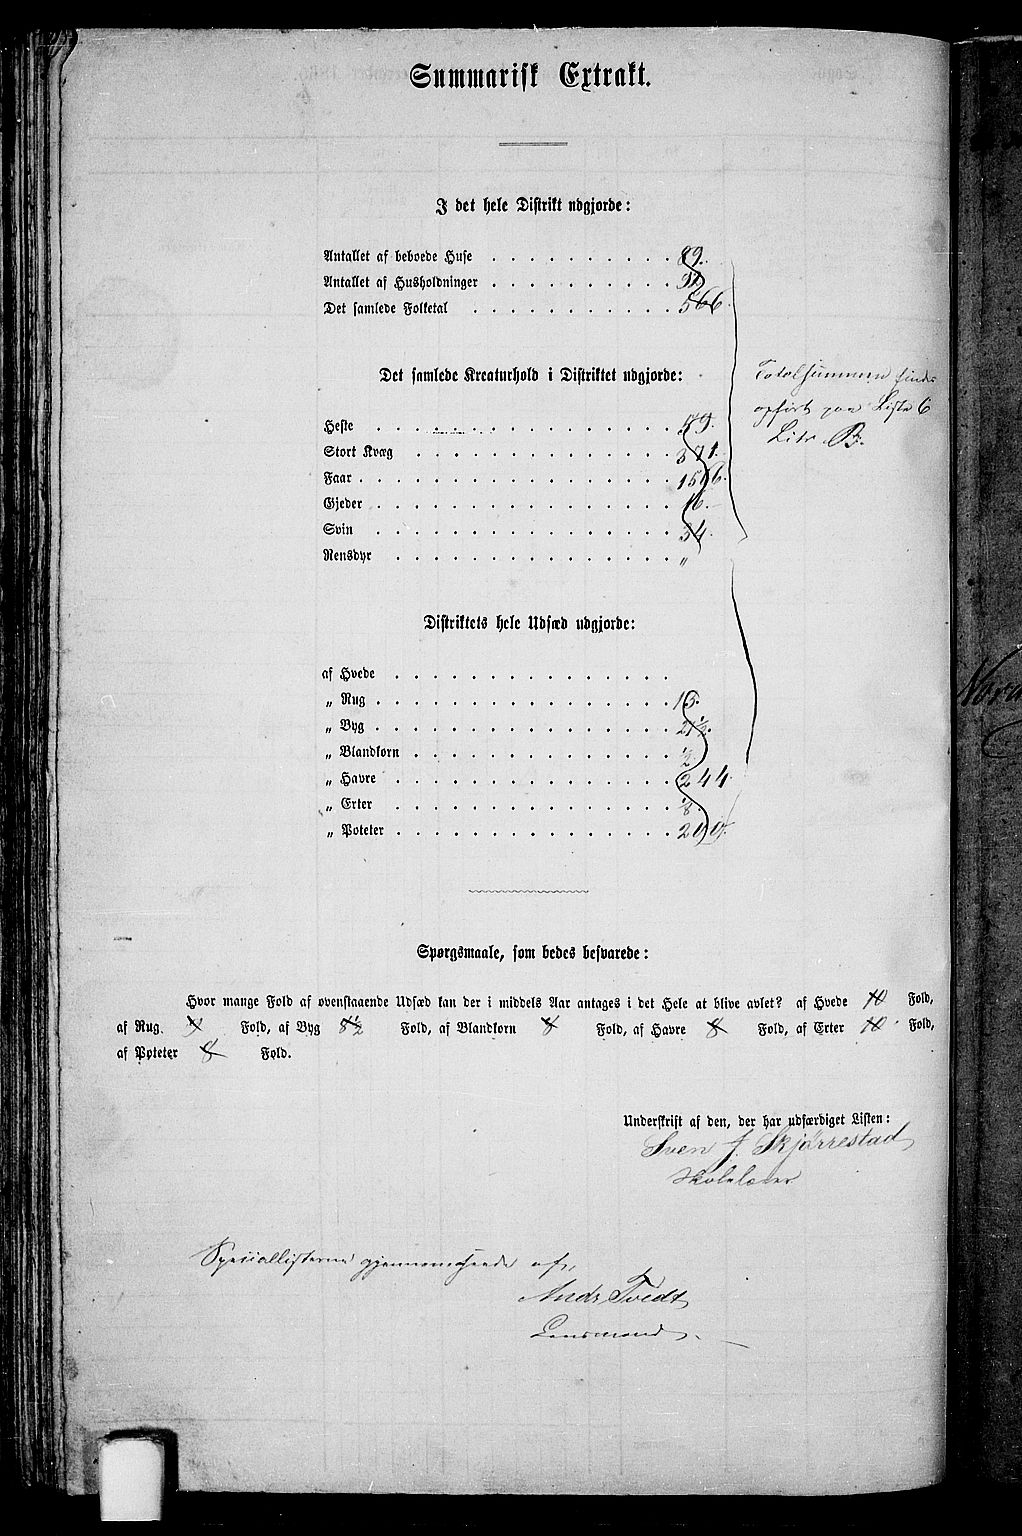 Summarisk Extrakt.
I det hele Distrikt udgjorde:
Antallet af beboede Huse . . . . . . . . . . 89.
Antallet af Husholdninger . . . . . . . . . .
Det samlede Folketal . . . . . . . . . . . 566
Det samlede Kreaturhold i Distriktet udgjorde:
Totalsummen findes
opført paa Liste 6
Litr. B.
Heste . . . . . . . . . . . . . . . . 59.
Stort Kvæg . . . . . . . . . . . . . . 371.
Faar . . . . . . . . . . . . . . . . . 1566.
Gjeder . . . . . . . . . . . . . . . . 16.
Svin . . . . . . . . . . . . . . . . 34.
Rensdyr . . . . . . . . . . . . . . . „
Distriktets hele Udsæd udgjorde:
af Hvede . . . . . . . . . . . . . . .
„ Rug . . . . . . . . . . . . . . . . 15.
„ Byg . . . . . . . . . . . . . . . . 21½.
„ Blandkorn . . . . . . . . . . . . . . ½
„ Havre . . . . . . . . . . . . . . . 244.
„ Erter . . . . . . . . . . . . . . . ⅛.
„ Poteter . . . . . . . . . . . . . . . 200.
Spørgsmaale, som bedes besvarede:
Hvor mange Fold af ovenstaaende Udsæd kan der i middels Aar antages i det Hele at blive avlet? af Hvede 10 Fold,
af Rug. 9 Fold, af Byg 8½ Fold, af Blandkorn 8 Fold, af Havre 8 Fold, af Erter 10. Fold,
af Poteter 8 Fold.
Underskrift af den, der har udfærdiget Listen:
Sven J. Skjörrestad
Skolelærer
Speciallisterne gjennemseede af,
Ands Tvedt
Lensmand.